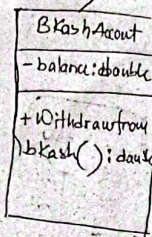 BKashAccout
- balance: double
+ Withdrawfrom
bKash():